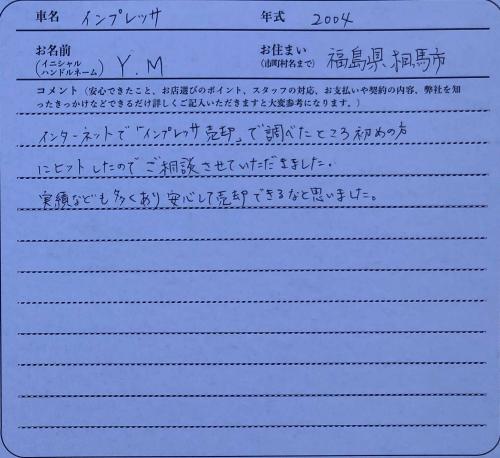 車名 インプレッサ 年式 2004
お名前 (イニシャル ハンドルネーム) Y.M お住まい (市町村名まで) 福島県相馬市
コメント(安心できたこと、お店選びのポイント、スタッフの対応、お支払いや契約の内容、弊社を知
ったきっかけなどできるだけ詳しくご記入いただきますと大変参考になります。)
インターネットで「インプレッサ売却」で調べたところ初めの方
にヒットしたのでご相談させていただきました.
実績なども多くあり安心して売却できるなと思いました。